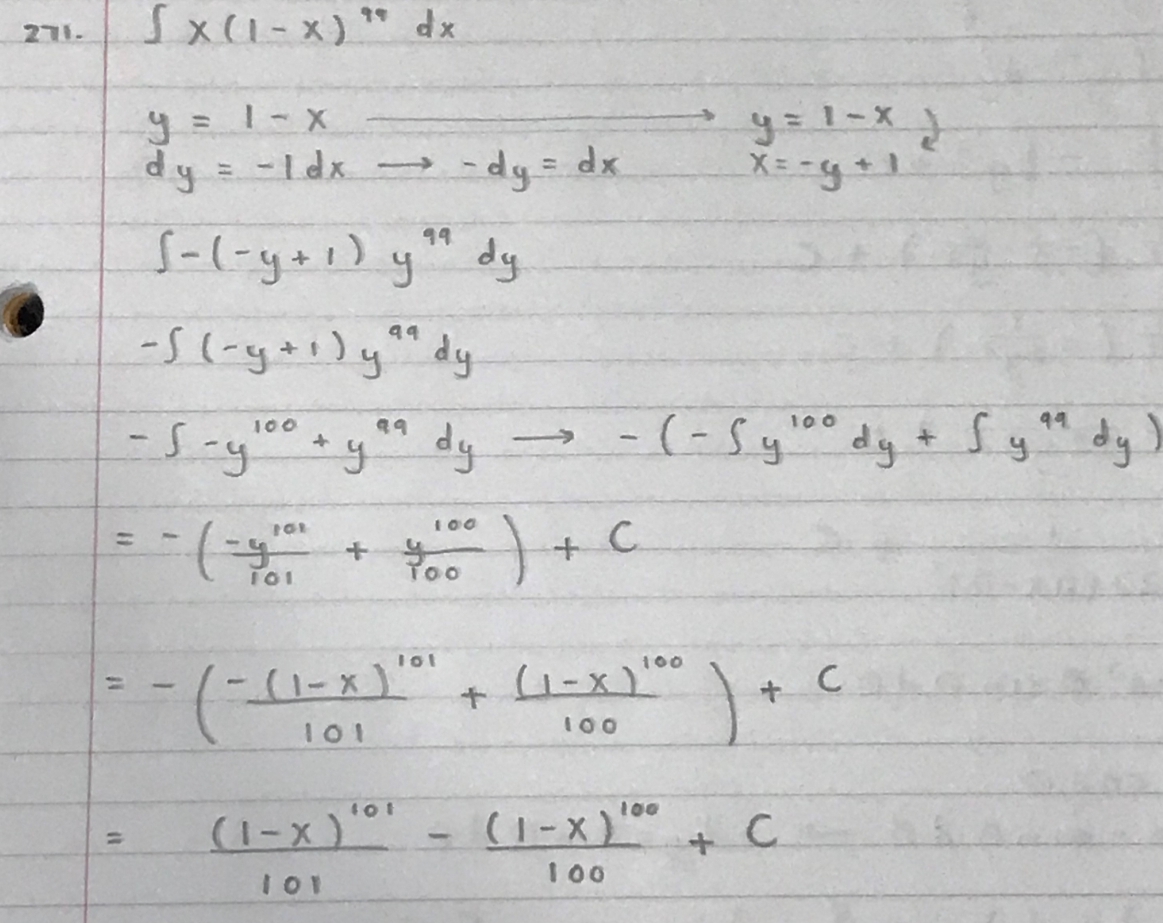 271. ∫ x(1-x)^99 dx
y = 1 - x ⟶ y = 1 - x
dy = -1dx ⟶ -dy = dx x = -y + 1
∫ -(-y+1) y^99 dy
-∫ (-y+1) y^99 dy
-∫ -y^100 + y^99 dy ⟶ -(-∫ y^100 dy + ∫ y^99 dy)
= -(-y^101/101 + y^100/100) + C
= -(-(1-x)^101/101 + (1-x)^100/100) + C
= (1-x)^101/101 - (1-x)^100/100 + C